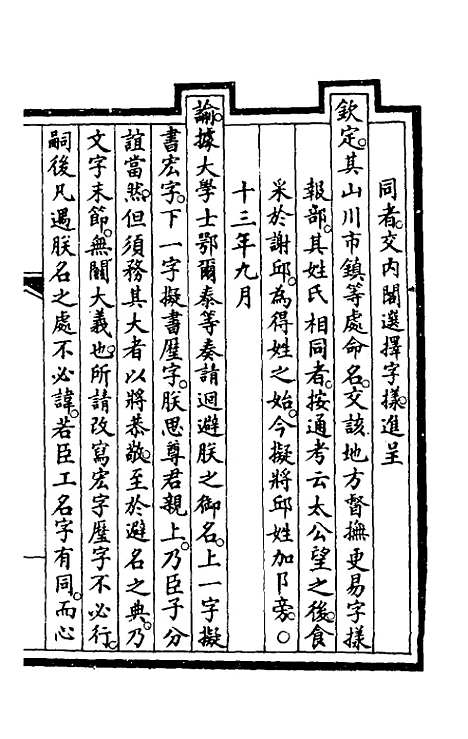 同者。交內閣選擇字樣進呈
欽定。其山川市鎮等處命名。交該地方督撫更易字樣
報部。其姓氏相同者。按通考云太公望之後。食
采於謝邱。為得姓之始。今擬將邱姓加阝旁。○
十三年九月
諭。據大學士鄂爾泰等奏請迴避朕之御名。上一字擬
書宏字。下一字擬書歷字。朕思尊君親上。乃臣子分
誼當然。但須務其大者以將恭敬。至於避名之典。乃
文字末節。無關大義也。所請改寫宏字歷字不必行。
嗣後凡遇朕名之處不必諱。若臣工名字有同。而心